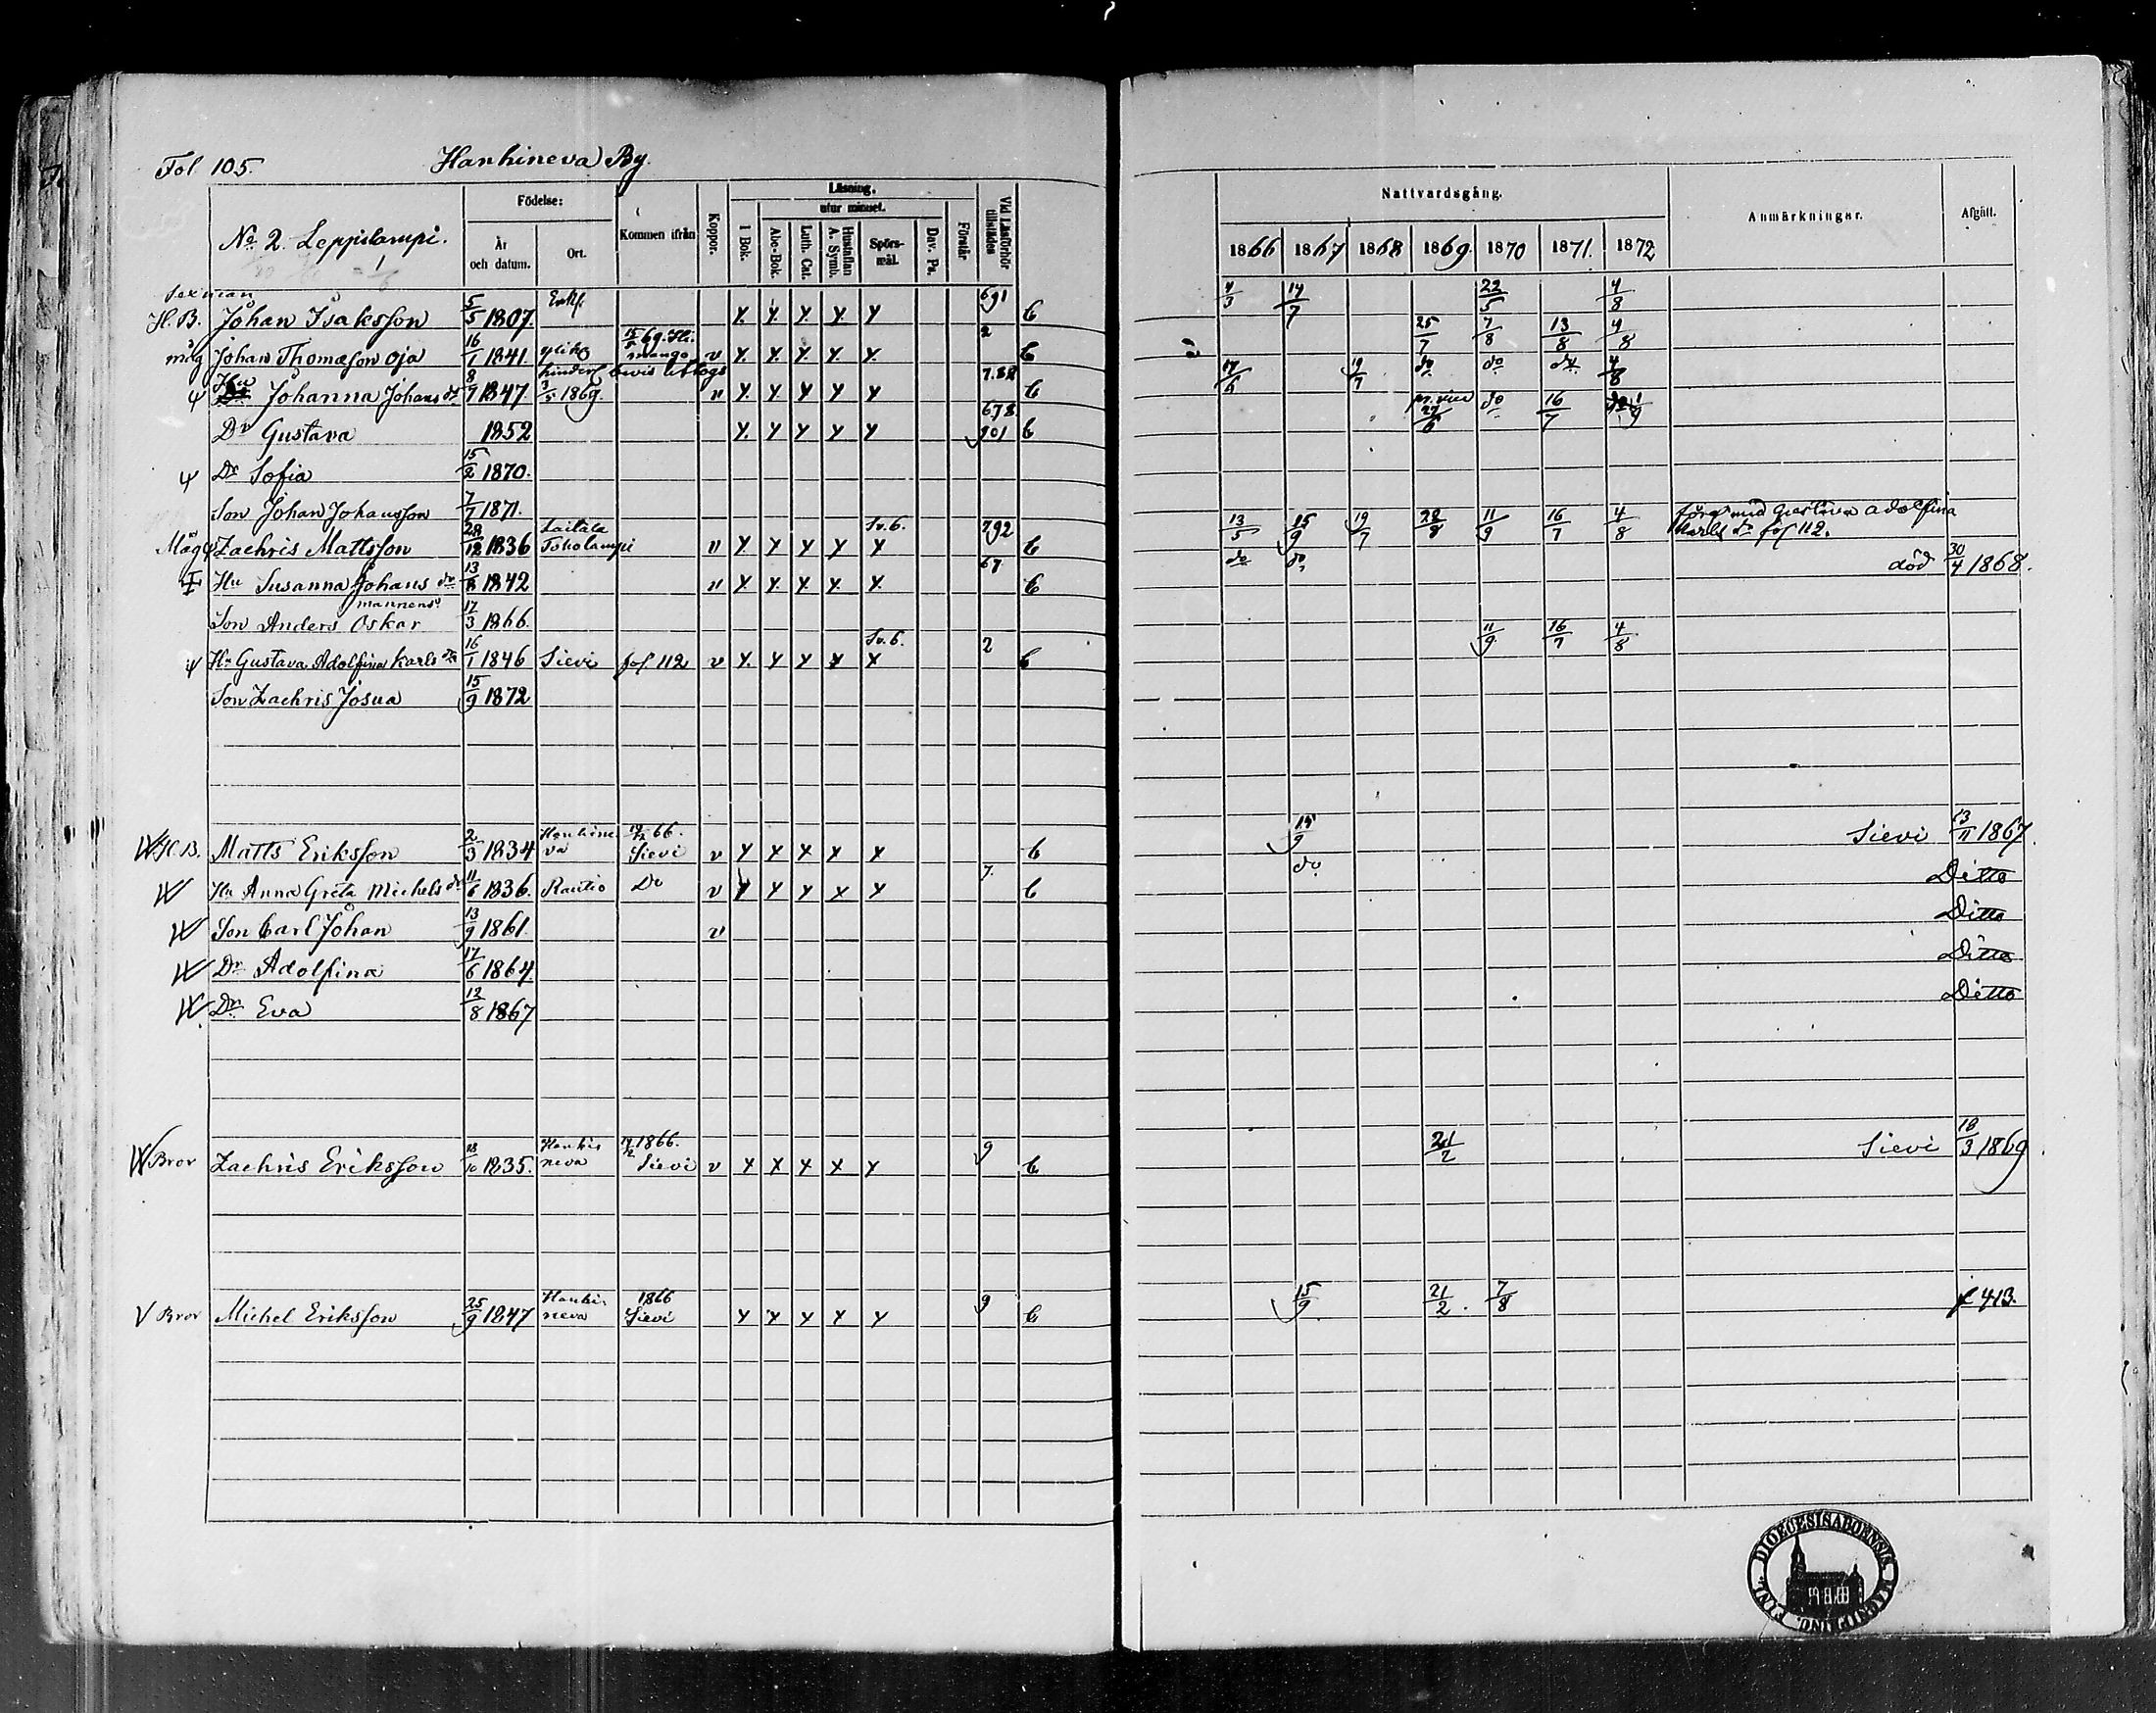 Fol 105. Hanhineva By.
No 2. Leppilampi.
Födelse: År och datum. Ort.
Kommen ifrån
Koppor.
Läsning.
I Bok.
utur minnet.
Abc-Bok. Luth. Cat. Hustaflan A. Symb. Spörs-mål. Dav. Ps.
Förstår
Vid Läsförhör tillstädes
Nattvardsgång.
1866 1867 1868 1869. 1870 1871. 1872
Anmärkningar.
Afgått.
Sexman
H. B. Johan Isaksson 5/5 1807. Enkl. x x x x x 691 C 4/3 14/7 22/5 4/8
måg Johan Thomasson Oja 16/1 1841. v x x x x x 2 C 25/7 7/8 13/8 4/8
Hu Johanna Johans dr 8/9 1847. 3/5 1869. v x x x x x C 17/6 19/7 do do do 4/8
Dr Gustava 1852 x x x x x 678 901 C 27/6 do 16/7 1/9
Dr Sofia 15/2 1870.
Son Johan Johansson 7/7 1871.
Måg Zachris Mattsson 1836 Laitala Toholampi v x x x x x Sv. 6. 792 C 13/5 15/9 19/7 22/8 11/9 16/7 4/8 Gustava Adolfina Karls dr fol 112.
Hu Susanna Johans dr 1842 v x x x x x 67 C do do död 30/4 1868.
mannens
Son Anders Oskar 17/3 1866.
Hu Gustava Adolfina Karls dr 16/1 1846 Sievi fol 112 v x x x x x Sv. 6. 2 C 11/9 16/7 4/8
Son Zachris Josua 15/9 1872
H. B. Matts Eriksson 2/3 1834 Hanhineva 66. Sievi v x x x x x C 15/9 Sievi 13/11 1867.
Hu Anna Greta Michels dr 11/6 1836. Rautio Do v x x x x x 7. C do Ditto
Son Carl Johan 13/9 1861 v Ditto
Dr Adolfina 17/6 1864 Ditto
Dr Eva 12/8 1867 Ditto
Bror Zachris Eriksson 1835. Hanhineva 1866. Sievi v x x x x x 9 C 21/2 Sievi 18/3 1869
V Bror Michel Eriksson 25/9 1847 Hanhineva 1866 Sievi x x x x x 9 C 15/9 21/2. 7/8 f 413.
DIOECESIS ABOENSIS MAGNI PRINC. FINL.